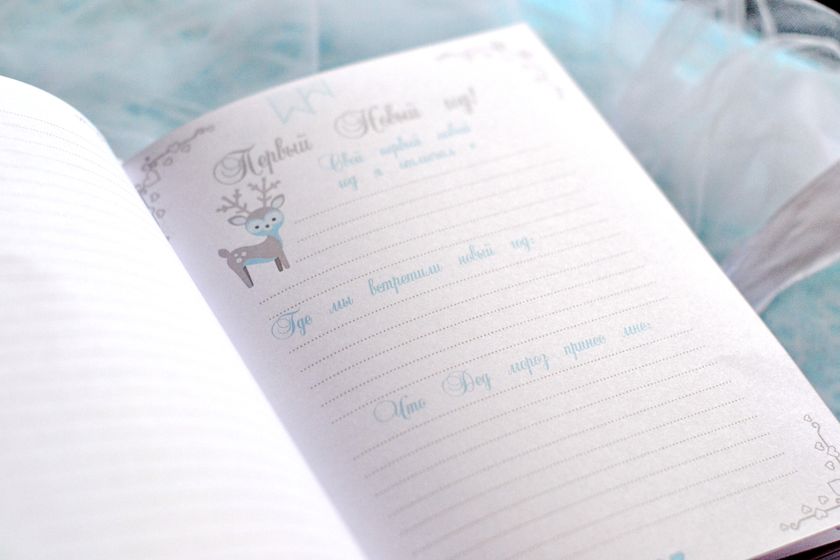 Первый Новый год!
Свой первый новый
год я отметил с
Где мы встретили новый год:
Что Дед мороз принес мне: